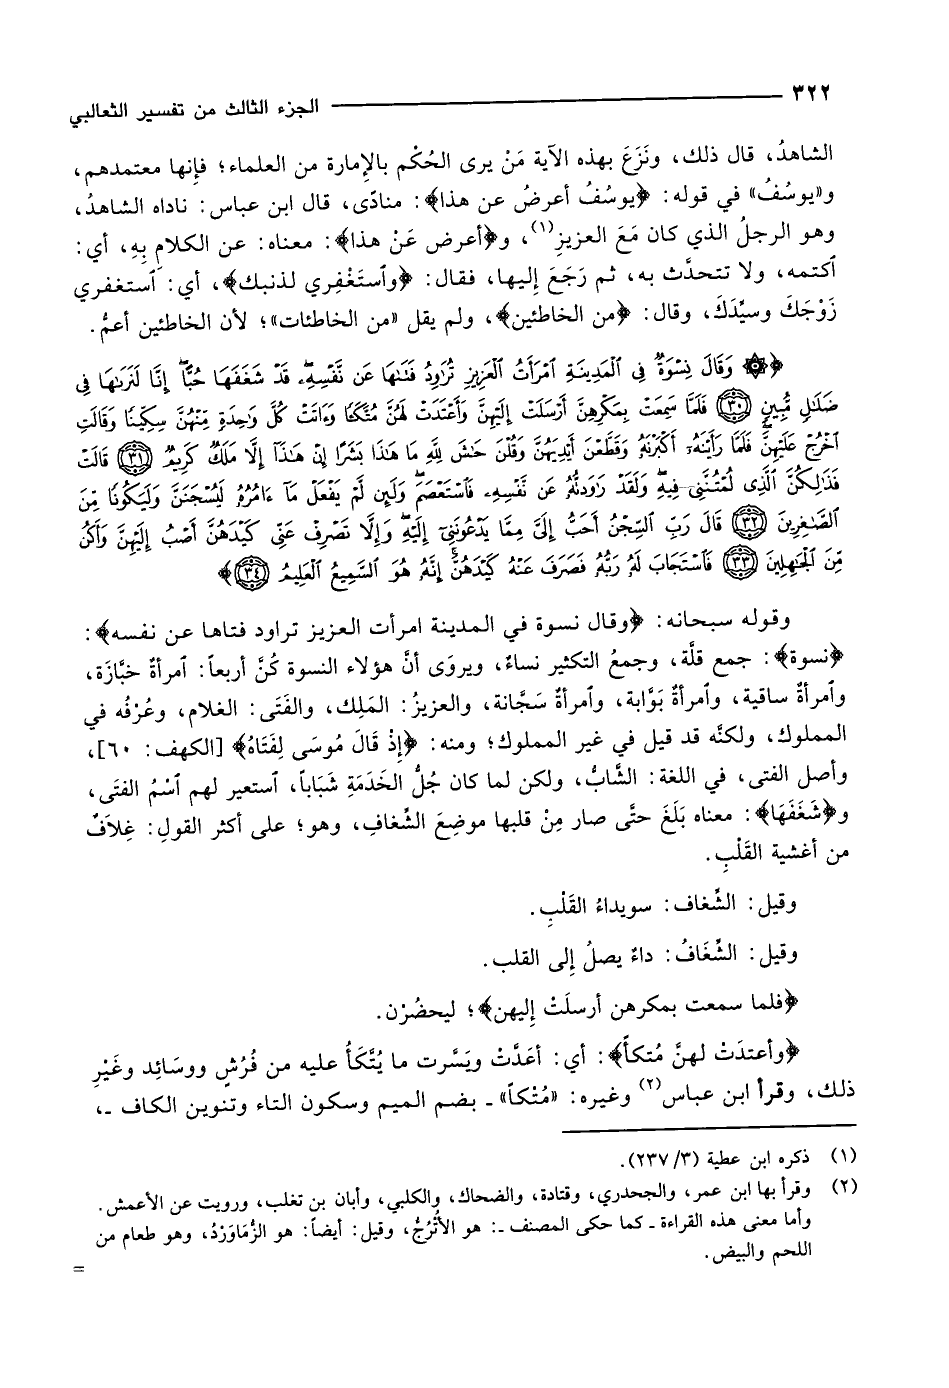 ٣٢٢ الجزء الثالث من تفسير الثعالبي
الشاهدُ، قال ذلك، ونَزَعَ بهذه الآية مَنْ يرى الحُكْم بالإمارة من العلماء؛ فإنها معتمدهم،
و«يوسُفُ» في قوله: ﴿يوسُفُ أعرضُ عن هذا﴾: منادًى، قال ابن عباس: ناداه الشاهدُ،
وهو الرجلُ الذي كان مَعَ العزيزِ(١)، و﴿أعرض عَنْ هذا﴾: معناه: عن الكلامِ بِهِ، أي:
ٱكتمه، ولا تتحدَّث به، ثم رَجَعَ إليها، فقال: ﴿وٱستَغْفِري لذنبك﴾، أي: ٱستغفري
زَوْجَكَ وسيِّدَكَ، وقال: ﴿من الخاطئين﴾، ولم يقل «من الخاطئات»؛ لأن الخاطئين أعمُّ.
﴿۞ وَقَالَ نِسْوَةٌ فِى ٱلْمَدِينَةِ ٱمْرَأَتُ ٱلْعَزِيزِ تُرَٰوِدُ فَتَىٰهَا عَن نَّفْسِهِۦۖ قَدْ شَغَفَهَا حُبًّاۖ إِنَّا لَنَرَىٰهَا فِى
ضَلَٰلٍ مُّبِينٍ ﴿٣٠﴾ فَلَمَّا سَمِعَتْ بِمَكْرِهِنَّ أَرْسَلَتْ إِلَيْهِنَّ وَأَعْتَدَتْ لَهُنَّ مُتَّكَـًٔا وَءَاتَتْ كُلَّ وَٰحِدَةٍ مِّنْهُنَّ سِكِّينًا وَقَالَتِ
ٱخْرُجْ عَلَيْهِنَّۖ فَلَمَّا رَأَيْنَهُۥٓ أَكْبَرْنَهُۥ وَقَطَّعْنَ أَيْدِيَهُنَّ وَقُلْنَ حَٰشَ لِلَّهِ مَا هَٰذَا بَشَرًا إِنْ هَٰذَآ إِلَّا مَلَكٌ كَرِيمٌ ﴿٣١﴾ قَالَتْ
فَذَٰلِكُنَّ ٱلَّذِى لُمْتُنَّنِى فِيهِۖ وَلَقَدْ رَٰوَدتُّهُۥ عَن نَّفْسِهِۦ فَٱسْتَعْصَمَۖ وَلَئِن لَّمْ يَفْعَلْ مَآ ءَامُرُهُۥ لَيُسْجَنَنَّ وَلَيَكُونًا مِّنَ
ٱلصَّٰغِرِينَ ﴿٣٢﴾ قَالَ رَبِّ ٱلسِّجْنُ أَحَبُّ إِلَىَّ مِمَّا يَدْعُونَنِىٓ إِلَيْهِۖ وَإِلَّا تَصْرِفْ عَنِّى كَيْدَهُنَّ أَصْبُ إِلَيْهِنَّ وَأَكُن
مِّنَ ٱلْجَٰهِلِينَ ﴿٣٣﴾ فَٱسْتَجَابَ لَهُۥ رَبُّهُۥ فَصَرَفَ عَنْهُ كَيْدَهُنَّۚ إِنَّهُۥ هُوَ ٱلسَّمِيعُ ٱلْعَلِيمُ ﴿٣٤﴾﴾
وقوله سبحانه: ﴿وقال نسوة في المدينة امرأت العزيز تراود فتاها عن نفسه﴾:
﴿نسوة﴾: جمع قلَّة، وجمعُ التكثير نساءٌ، ويروَى أنَّ هؤلاء النسوة كُنَّ أربعاً: ٱمرأةٌ خبَّازَة،
وٱمرأةٌ ساقية، وٱمرأةٌ بَوَّابة، وٱمرأةٌ سَجَّانة، والعزيزُ: المَلِك، والفَتَى: الغلام، وعُرْفُه في
المملوك، ولكنَّه قد قيل في غير المملوك؛ ومنه: ﴿إِذْ قَالَ مُوسَى لِفَتَاهُ﴾ [الكهف: ٦٠]،
وأصل الفتى، في اللغة: الشَّابُّ، ولكن لما كان جُلُّ الخَدَمَةِ شَبَاباً، ٱستعير لهم ٱسْمُ الفتَى،
و﴿شَغَفَهَا﴾: معناه بَلَغَ حتَّى صار مِنْ قلبها موضِعَ الشِّغافِ، وهو؛ على أكثر القولِ: غِلاَفٌ
من أغشية القَلْبِ.
وقيل: الشِّغاف: سويداءُ القَلْبِ.
وقيل: الشِّغَافُ: داءٌ يصلُ إلى القلب.
﴿فلما سمعت بمكرهن أرسلَتْ إليهن﴾؛ ليحضُرْن.
﴿وأعتدَتْ لهنَّ مُتكأً﴾: أي: أعَدَّتْ ويَسَّرت ما يُتَّكَأُ عليه من فُرُشٍ ووسَائِد وغَيْرِ
ذلك، وقرأ ابن عباس(٢) وغيره: «مُتْكاً» ـ بضم الميم وسكون التاء وتنوين الكاف ـ،
(١) ذكره ابن عطية (٣/ ٢٣٧).
(٢) وقرأ بها ابن عمر، والجحدري، وقتادة، والضحاك، والكلبي، وأبان بن تغلب، ورويت عن الأعمش.
وأما معنى هذه القراءة ـ كما حكى المصنف ـ: هو الأُتْرُجُّ، وقيل: أيضاً: هو الزُّمَاوَرْدُ، وهو طعام من
اللحم والبيض.
=